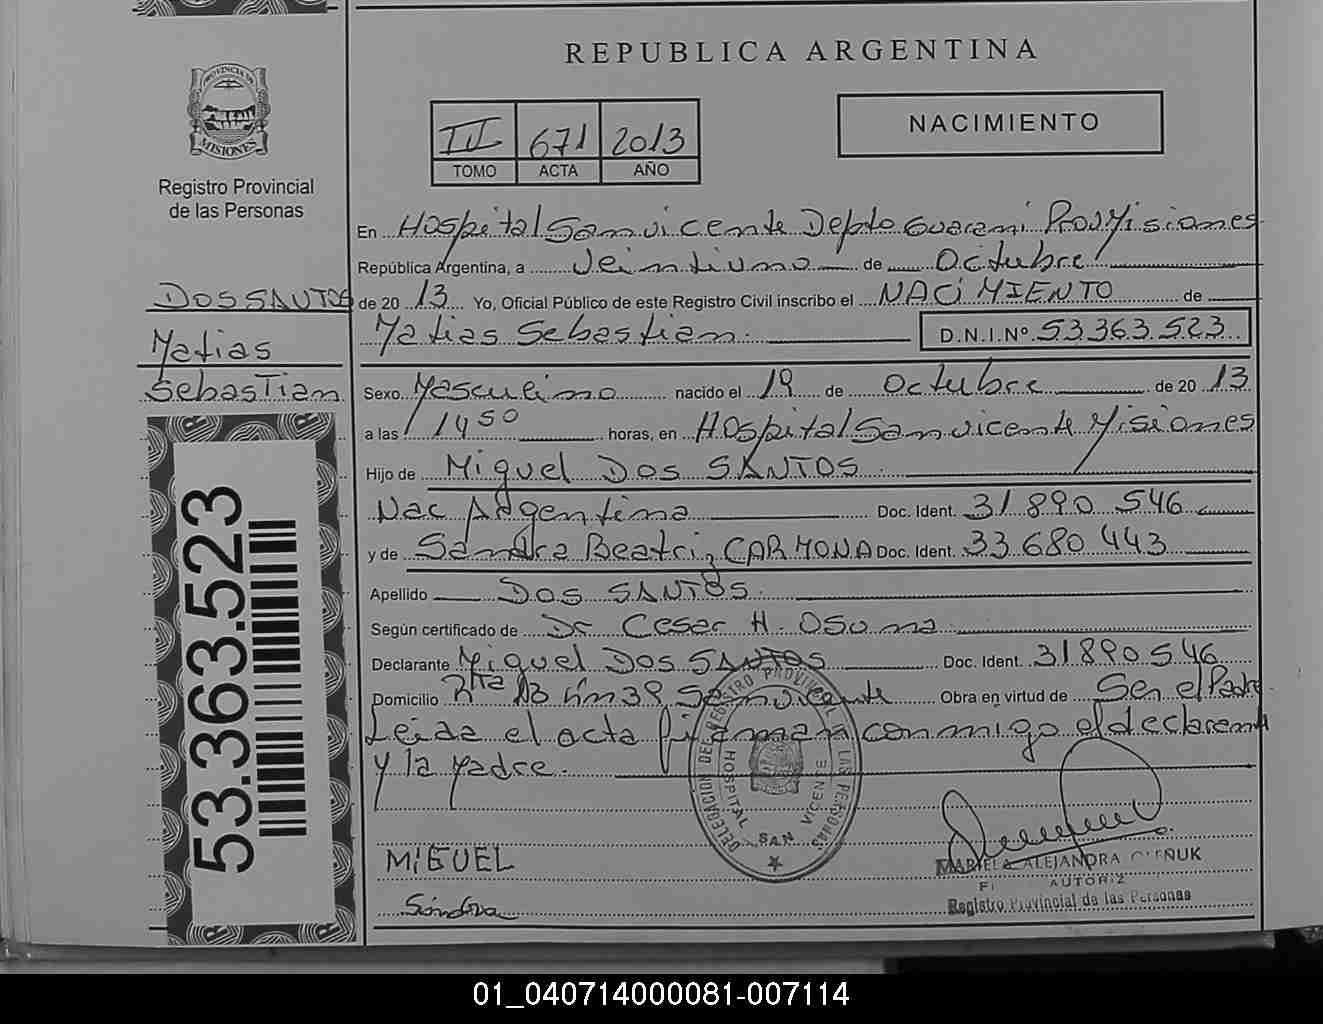 REPUBLICA ARGENTINA
PROVINCIA DE
MISIONES
Registro Provincial
de las Personas
II 671 2013
TOMO ACTA AÑO
NACIMIENTO
En Hospital San Vicente Depto Guarani Prov Misiones
República Argentina, a Veintiuno de Octubre
de 20 13 Yo, Oficial Público de este Registro Civil inscribo el NACIMIENTO de
Matias Sebastian D.N.I.Nº 53.363.523
DOS SANTOS
Matias
Sebastian
Sexo Masculino nacido el 19 de Octubre de 20 13
a las 14 50 horas, en Hospital San Vicente Misiones
Hijo de Miguel DOS SANTOS
Nac Argentina Doc. Ident. 31 890 546
y de Sandra Beatriz CARMONA Doc. Ident. 33 680 443
Apellido DOS SANTOS
Según certificado de Dr Cesar H. Osuna
Declarante Miguel DOS SANTOS Doc. Ident. 31890546
Domicilio Rta 13 km 39 San Vicente Obra en virtud de Ser el Padre
Leida el acta firman conmigo el declarant
y la Madre.
53.363.523
DELEGACION DEL REGISTRO PROVINCIAL LAS PERSONAS
HOSPITAL SAN VICENTE
MIGUEL
Sandra
MARIELA ALEJANDRA
AUTORIZ
Registro Provincial de las Personas
01_040714000081-007114